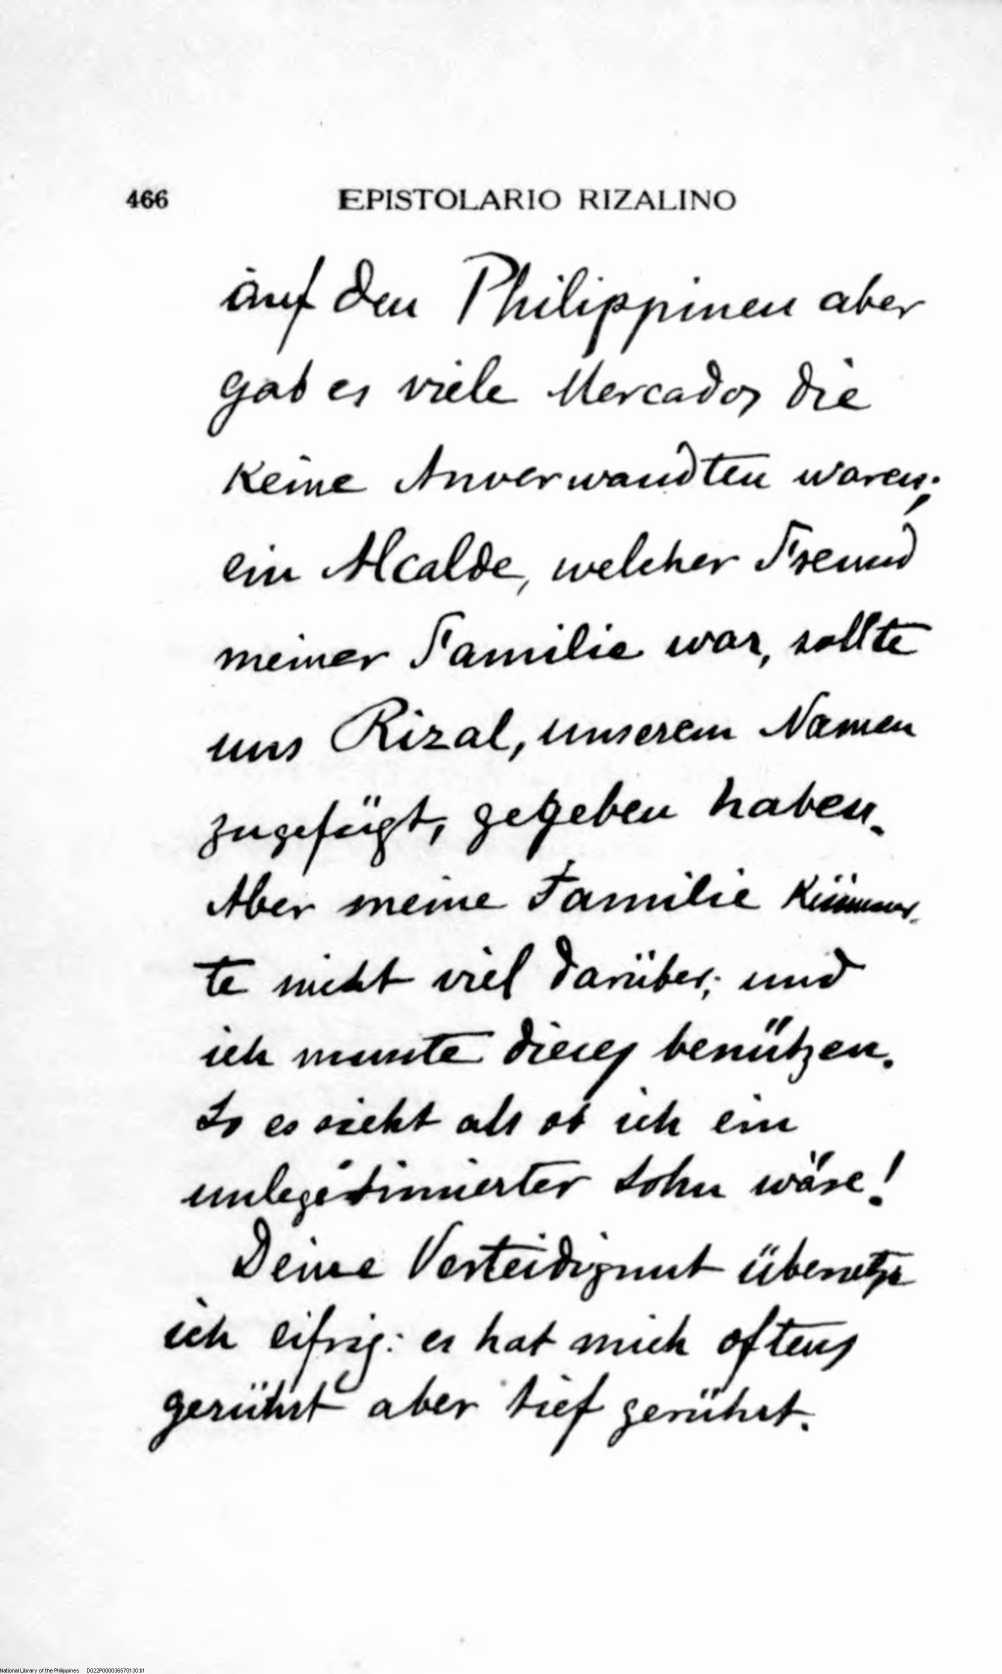 466 EPISTOLARIO RIZALINO
auf den Philippinen aber
gab es viele Mercados die
keine Anverwandten waren;
ein Alcalde, welcher Freund
meiner Familie war, sollte
uns Rizal, unserem Namen
zugefügt, gegeben haben.
Aber meine Familie kümmer-
te nicht viel darüber; und
ich musste dieses benützen.
So es sieht als ob ich ein
unlegitimierter Sohn wäre!
Deine übersetze
ich eifrig: es hat mich oftens
gerührt aber tief gerührt.
National Library of the Philippines